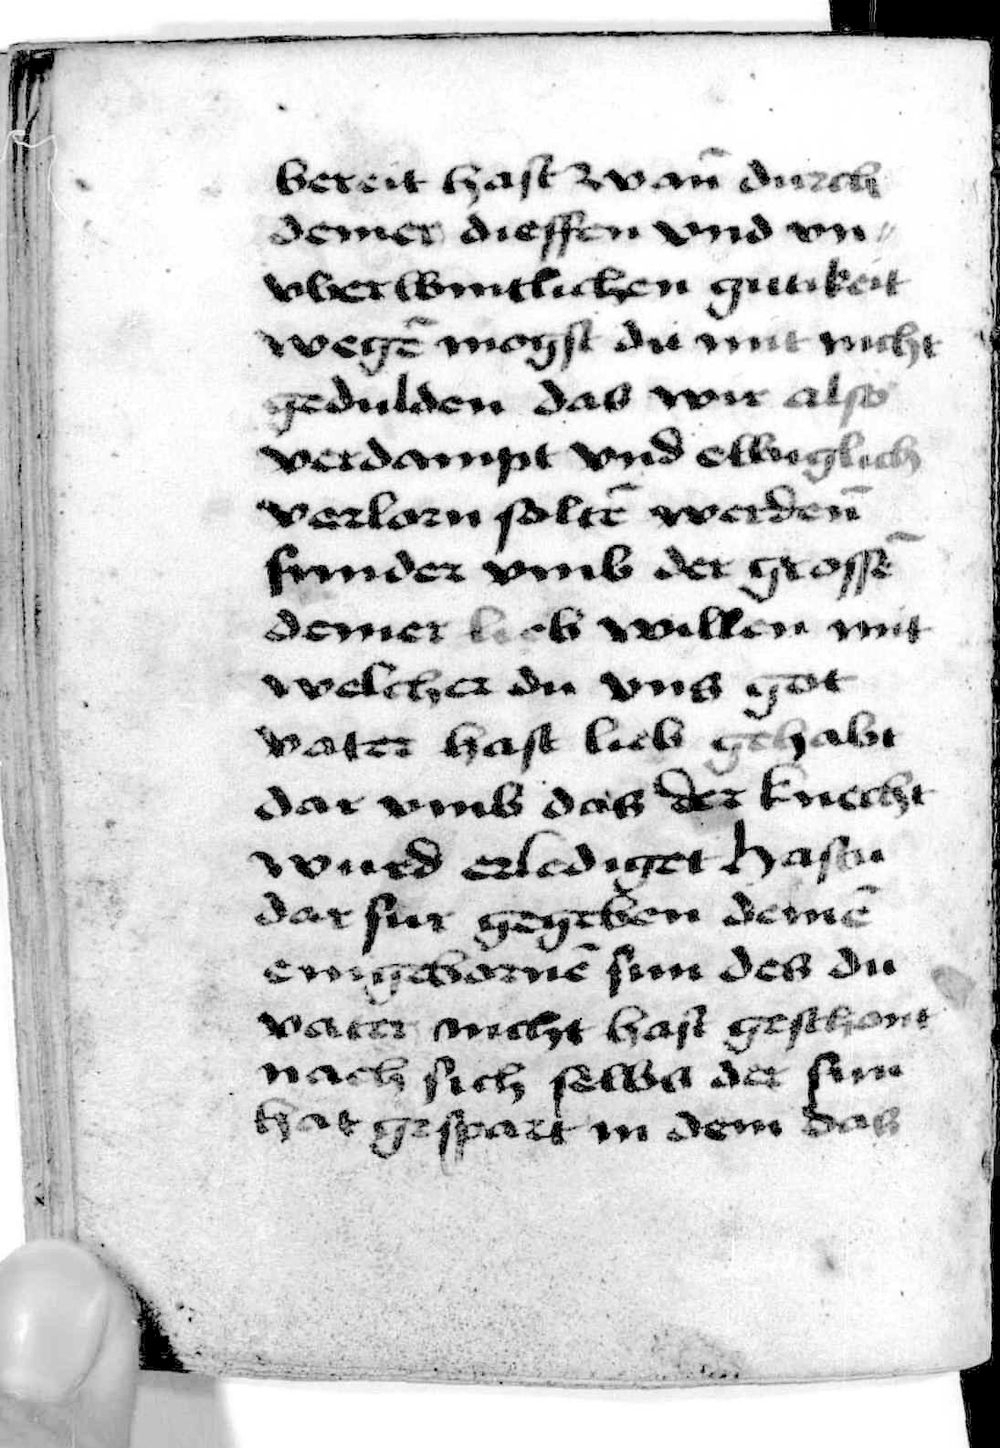 bereit hast Wan̄ durch
deiner dieffen vnd vn⸗
vberwintlichen gutikeit
wegē mogst du mit nicht
gedulden das wir also
verdampt vnd ewiglich
verlorn soltē werden̄
sunder vmb der grossē
deiner lieb willen mit
welcher du vns got
vater hast lieb gehabt
dar vmb das der knecht
wurd erlediget hastu
dar fur gegeben deinē
eingebornē sun des du
vater nicht hast geschont
nach sich selbs der sun
hat gespart in dem das